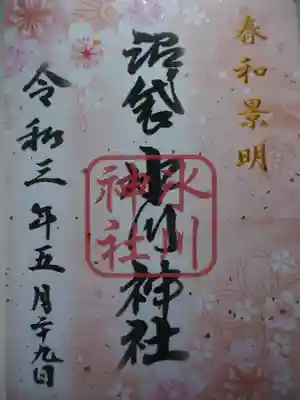 春和景明
沼袋 氷川神社
氷川
神社
令和三年五月二十九日